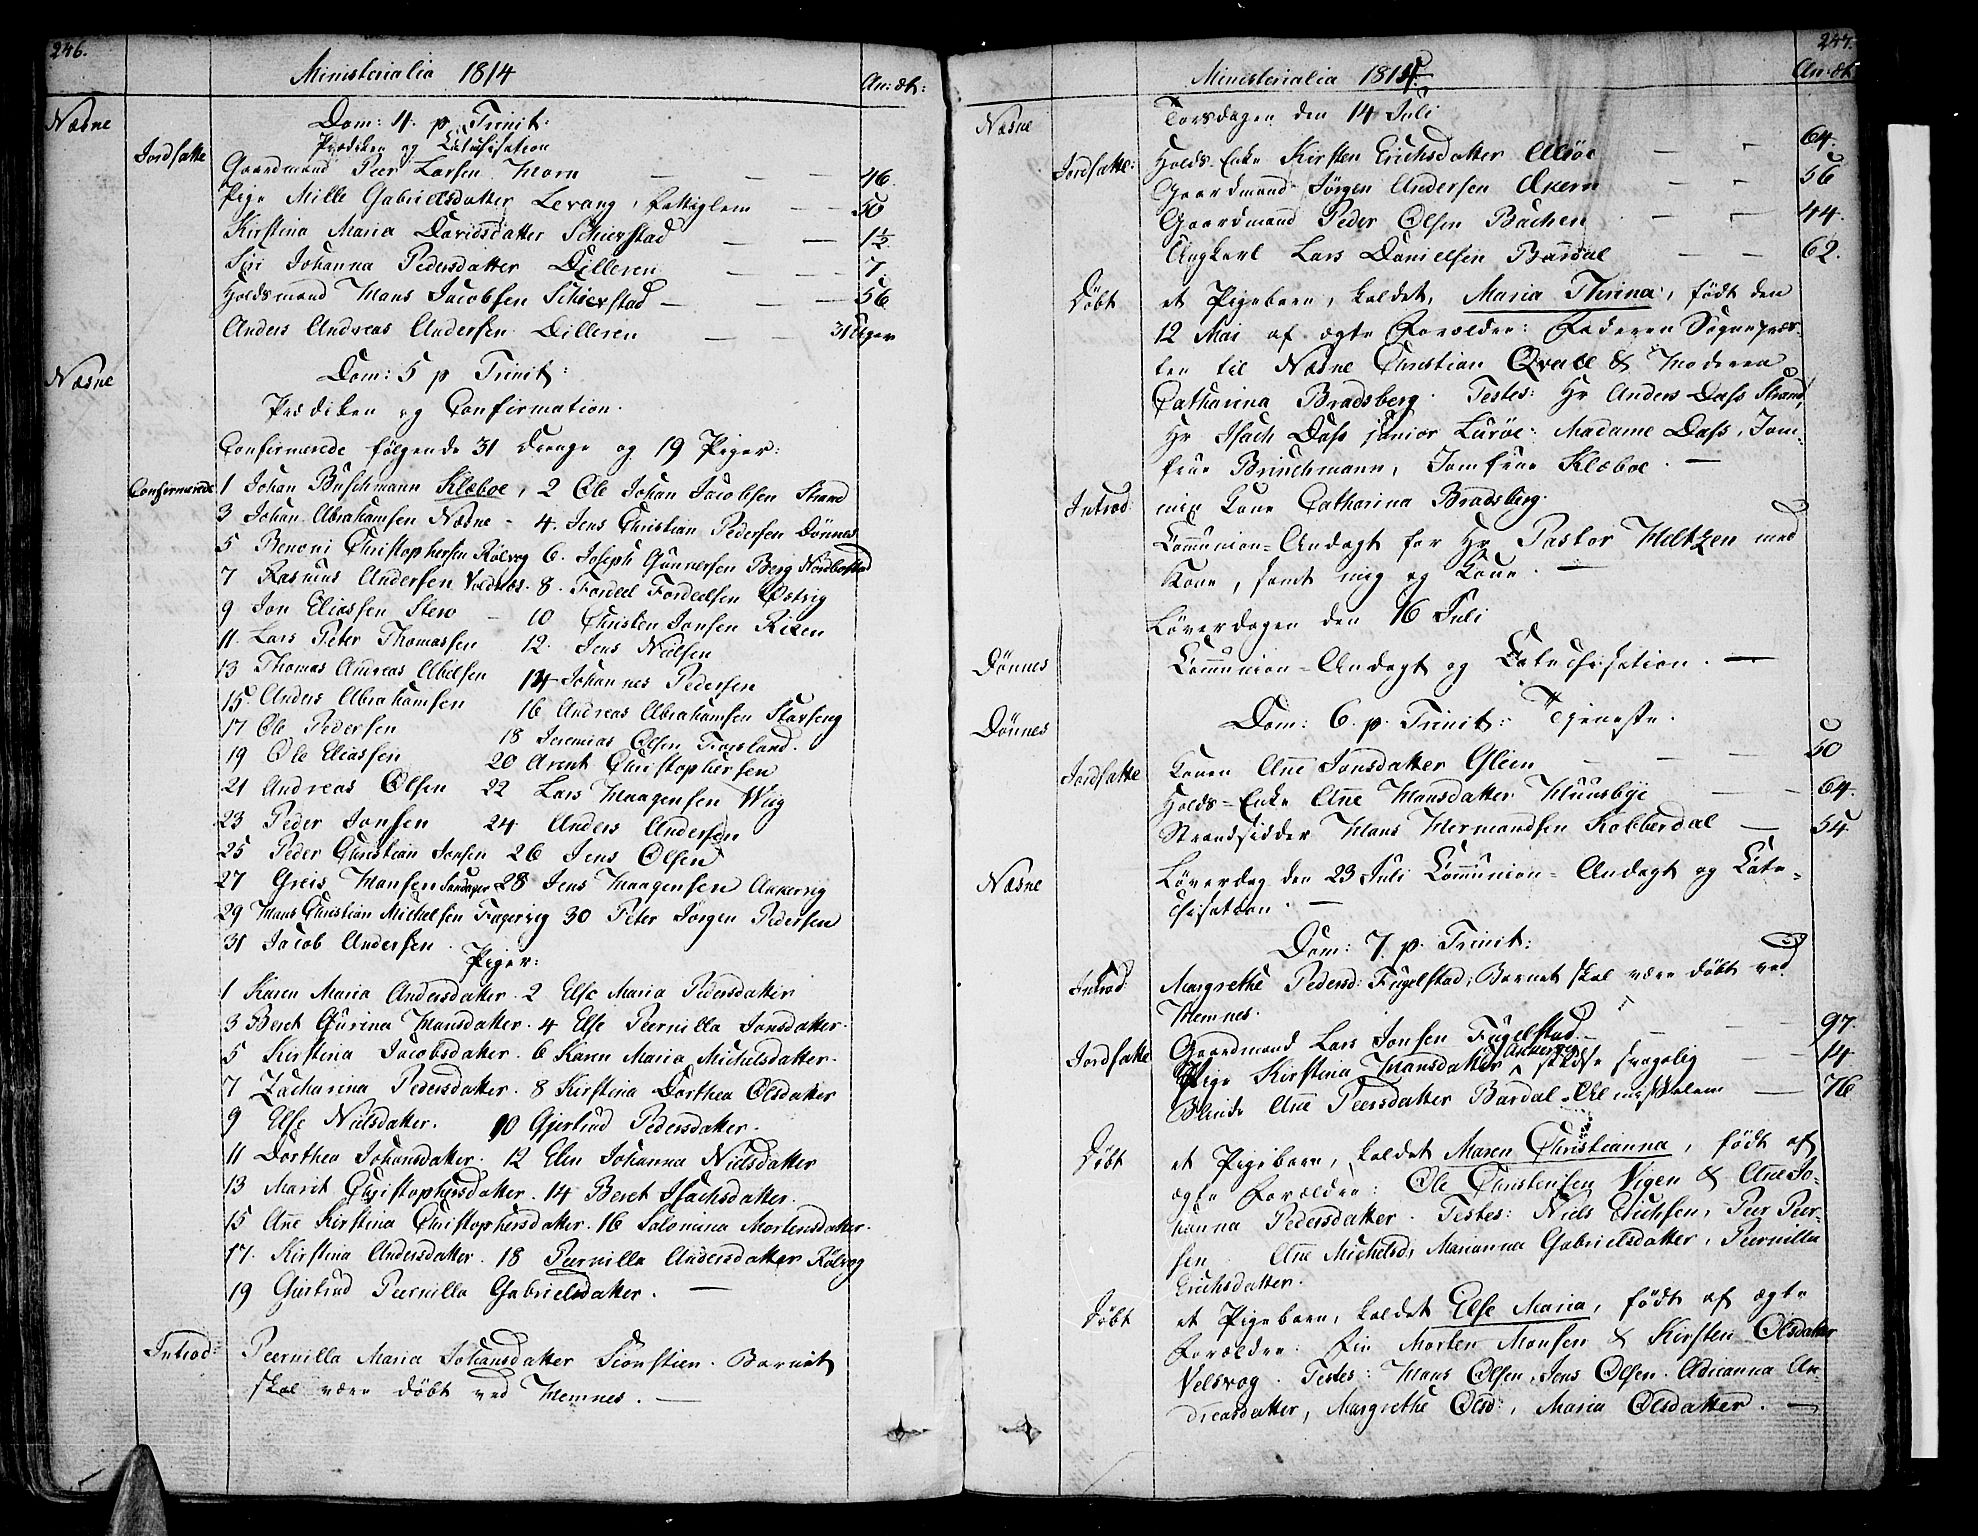 246.
Ministerialia 1814
An: æt:
Næsne
Dom: 4. p. Trinit:
Prædiken og Catechisation
Jordfæstede
Gaardmand Peer Larsen Horn — — — 46.
Pige Mille Gabrielsdatter Levang, fattiglem — — 50
Kirstina Maria Davidsdatter Schierstad — — 1½
Siri Johanna Pedersdatter Dilleren — — — 7.
Holdsmand Hans Jacobsen Schierstad — — — 56
Anders Andreas Andersen Dilleren — — 31 Uger
Næsne
Dom: 5 p Trinit:
Prædiken og Confirmation.
Confirmerede følgende 31 Drenge og 19 Piger:
Confirmerede
1 Johan Buschmann Klæboe, 2 Ole Johan Jacobsen Strand
3 Johan Abrahamsen Næsne - 4. Jens Christian Pedersen Dønnes
5 Benoni Christophersen Rølvog 6. Joseph Gunnersen Berg Nordbostad
7 Rasmus Andersen 8. Fordeel Fordeelsen
9 Jon Eliassen Stero — 10 Christen Jonsen
11. Lars Peter Thomassen 12. Jens Nielsen
13 Thomas Andreas Abelsen 14 Johannes Pedersen
15 Anders Abrahamsen 16 Andreas Abrahamsen Starseng
17 Ole Pedersen 18 Jeremias Olsen Forsland.
19 Ole Eliassen 20 Arent Christophersen
21 Andreas Olsen 22 Lars Haagensen Wiig
23 Peder Jonsen 24 Anders Andersen
25 Peder Christian Jonsen 26 Jens Olsen
27 Greis Hansen 28 Jens Haagensen Ankervig
29 Hans Christian Michelsen Fagervig 30 Peter Jørgen Pedersen
31 Jacob Andersen.
Piger:
1 Karen Maria Andersdatter. 2 Else Maria Pedersdatter
3 Beret Gurina Hansdatter. 4 Else Peernilla Jonsdatter.
5 Kirstina Jacobsdatter. 6 Karen Maria Michelsdatter.
7 Zacharina Pedersdatter. 8 Kirstina Dorthea Olsdatter
9 Else Nielsdatter. 10 Gjertrud Pedersdatter.
11 Dorthea Johansdatter. 12 Elen Johanna Nielsdatter
13 Marit Christophersdatter. 14 Beret Isachsdatter.
15 Ane Kirstina Christophersdatter. 16 Salomina Mortensdatter.
17. Kirstina Andersdatter. 18 Peernilla Andersdatter Rølvog
19 Giertrud Peernilla Gabrielsdatter. —
Introd:
Peernilla Maria Johansdatter. Barnet
skal være døbt ved Hemnes. —
247.
Ministerialia 1814.
An: æt:
Næsne
Torsdagen den 14 Juli
Jordfæstede:
Holds-Enke Kirsten Erichsdatter Alsøe — - 64.
Gaardmand Jørgen Andersen Akern — - 56
Gaardmand Peder Olsen Bachen - - 44.
Ungkarl Lars Danielsen Bardal — — 62.
Døbt
et Pigebarn, kaldet, Maria Thrina, født den
12 Mai af ægte Forældre: Faderen Sognepræs-
ten til Næsne Christian Qvale & Moderen
Catharina Bradsberg. Testes: Hr Anders Dass Strand,
Hr Isach Dass junior Lurøe: Madame Dass, Jom-
frue Brinchmann, Jomfrue Klæboe. —
Introd
min Kone Catharina Bradsberg.
Communion-Andagt for Hr Pastor Heltzen med
Kone, samt mig og Kone. —
Løverdagen den 16 Juli
Dønnes
Communion-Andagt og Catechisation. —
Dønnes
Dom: 6. p. Trinit: Tjeneste.
Jordfæstede
Konen Ane Jonsdatter Glein — — 50
Holds-Enke Ane Hansdatter Huusbye — — 64.
Strandsidder Hans Hermandsen Kobberdal — 54
Næsne
Løverdag den 23 Juli Communion-Andagt og Cate-
chisation. —
Dom: 7. p. Trinit:
Introd:
Margrethe Pedersd: Fugelstad, Barnet skal være døbt ved
Hemnes.
Jordfæstede
Gaardmand Lars Jonsen Fugelstad. — — 97.
Pige Kirstina Hansdatter Ankervig — — 14.
Blinde Ane Peersdatter Bardal — 76
Døbt
et Pigebarn, kaldet Maren Christianna, født af
ægte Forældre: Ole Christensen Vigen & Ane Jo-
hanna Pedersdatter. Testes: Niels Erichsen, Peer Peer-
sen. Ane Michelsd, Marianna Gabrielsdatter, Peernilla
Erichsdatter.
Døbt
et Pigebarn, kaldet Else Maria, født af ægte
Forældre: Morten Monsen & Kirsten Olsdatter
Velsvog. Testes: Hans Olsen, Jens Olsen. Adrianna An-
dreasdatter, Margrethe Olsd:, Maria Olsdatter. —